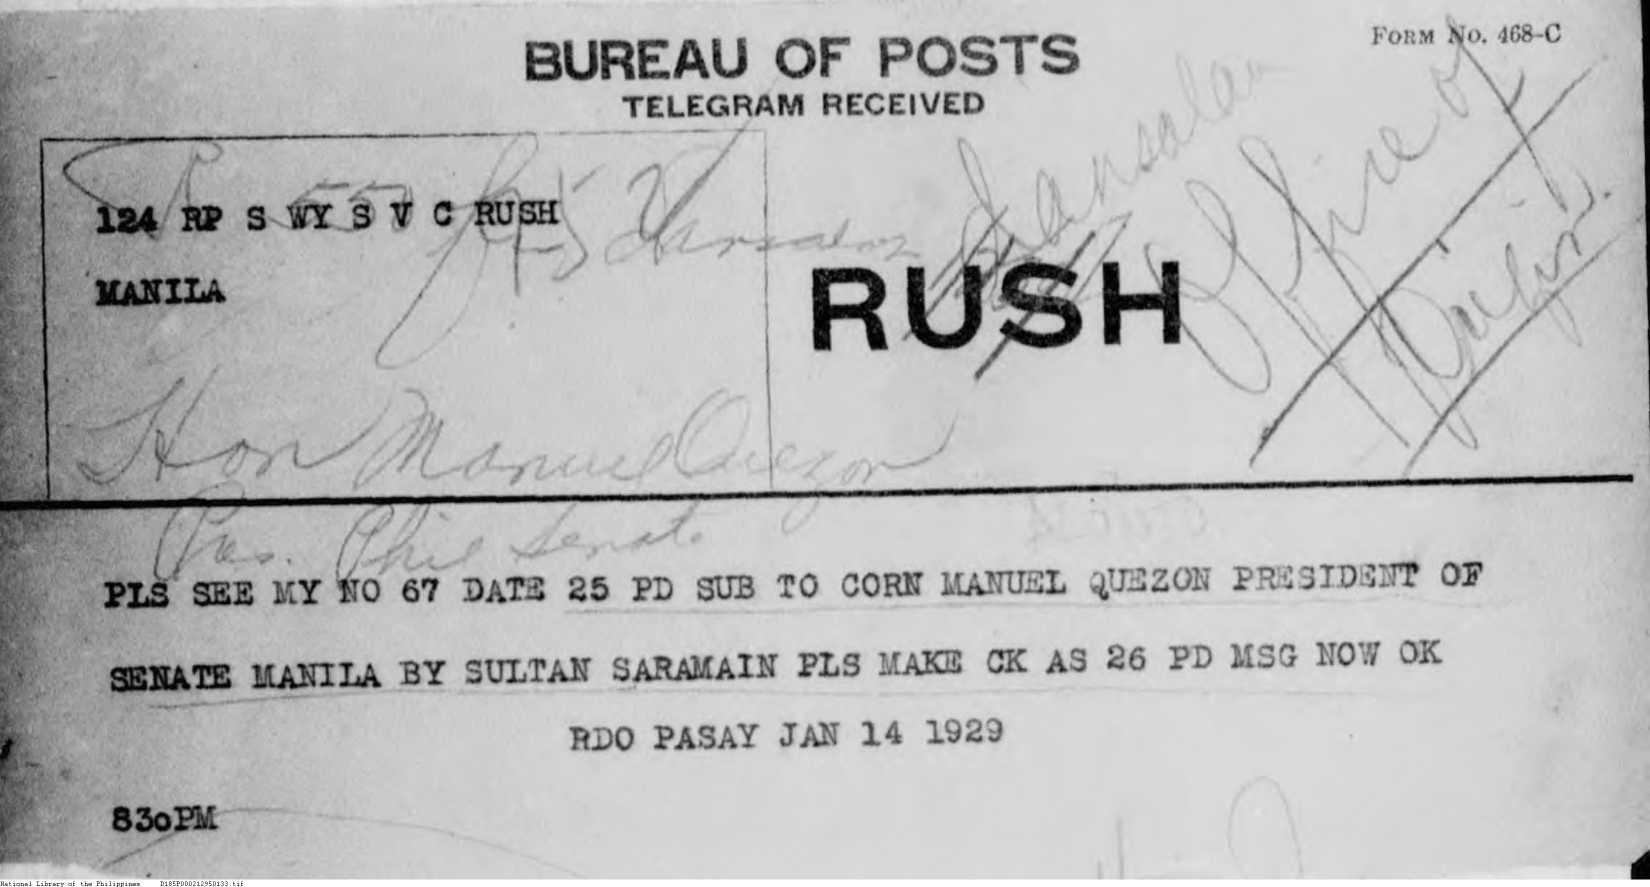 FORM No. 468-C
BUREAU OF POSTS
TELEGRAM RECEIVED
124 RP S WY S V C RUSH
MANILA
RUSH
Dansalan
Hon Manuel Quezon
Pres. Phil Senate
PLS SEE MY NO 67 DATE 25 PD SUB TO CORN MANUEL QUEZON PRESIDENT OF
SENATE MANILA BY SULTAN SARAMAIN PLS MAKE CK AS 26 PD MSG NOW OK
RDO PASAY JAN 14 1929
830PM
National Library of the Philippines D185P000212950133.tif